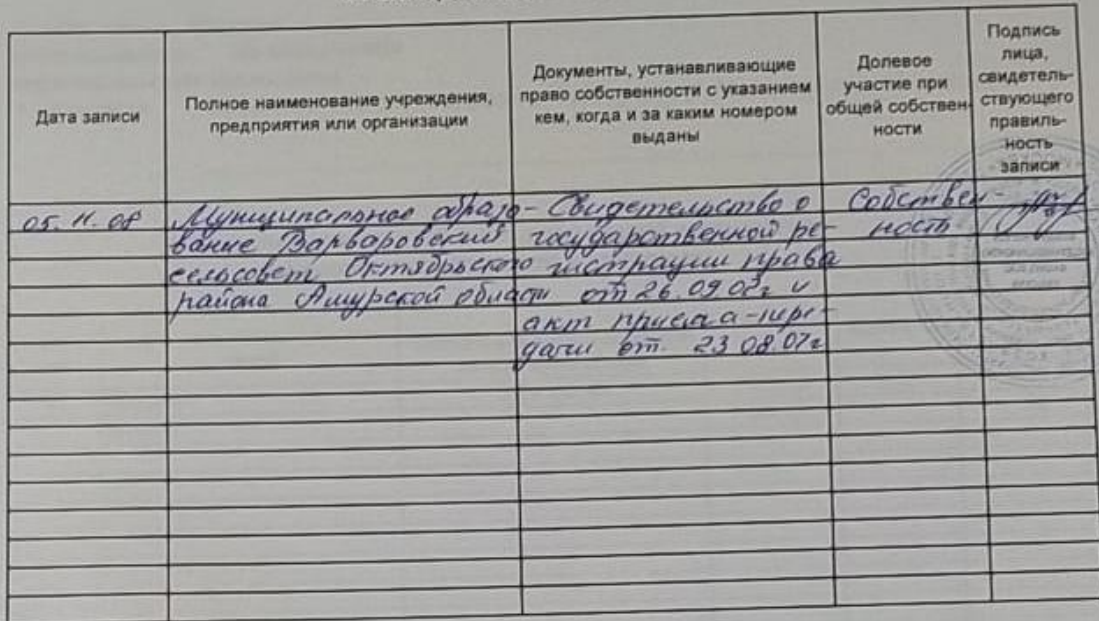 Дата записи
Полное наименование учреждения,
предприятия или организации
Документы, устанавливающие
право собственности с указанием
кем, когда и за каким номером
выданы
Долевое
участие при
общей собствен-
ности
Подпись
лица,
свидетель-
ствующего
правиль-
ность
записи
05.11.08
Муниципальное образо-
вание Варваровский
сельсовет Октябрьского
района Амурской области
Свидетельство о
государственной ре-
гистрации права
от 26.09.07г и
акт приема-пере-
дачи от 23.08.07г
Собствен-
ность